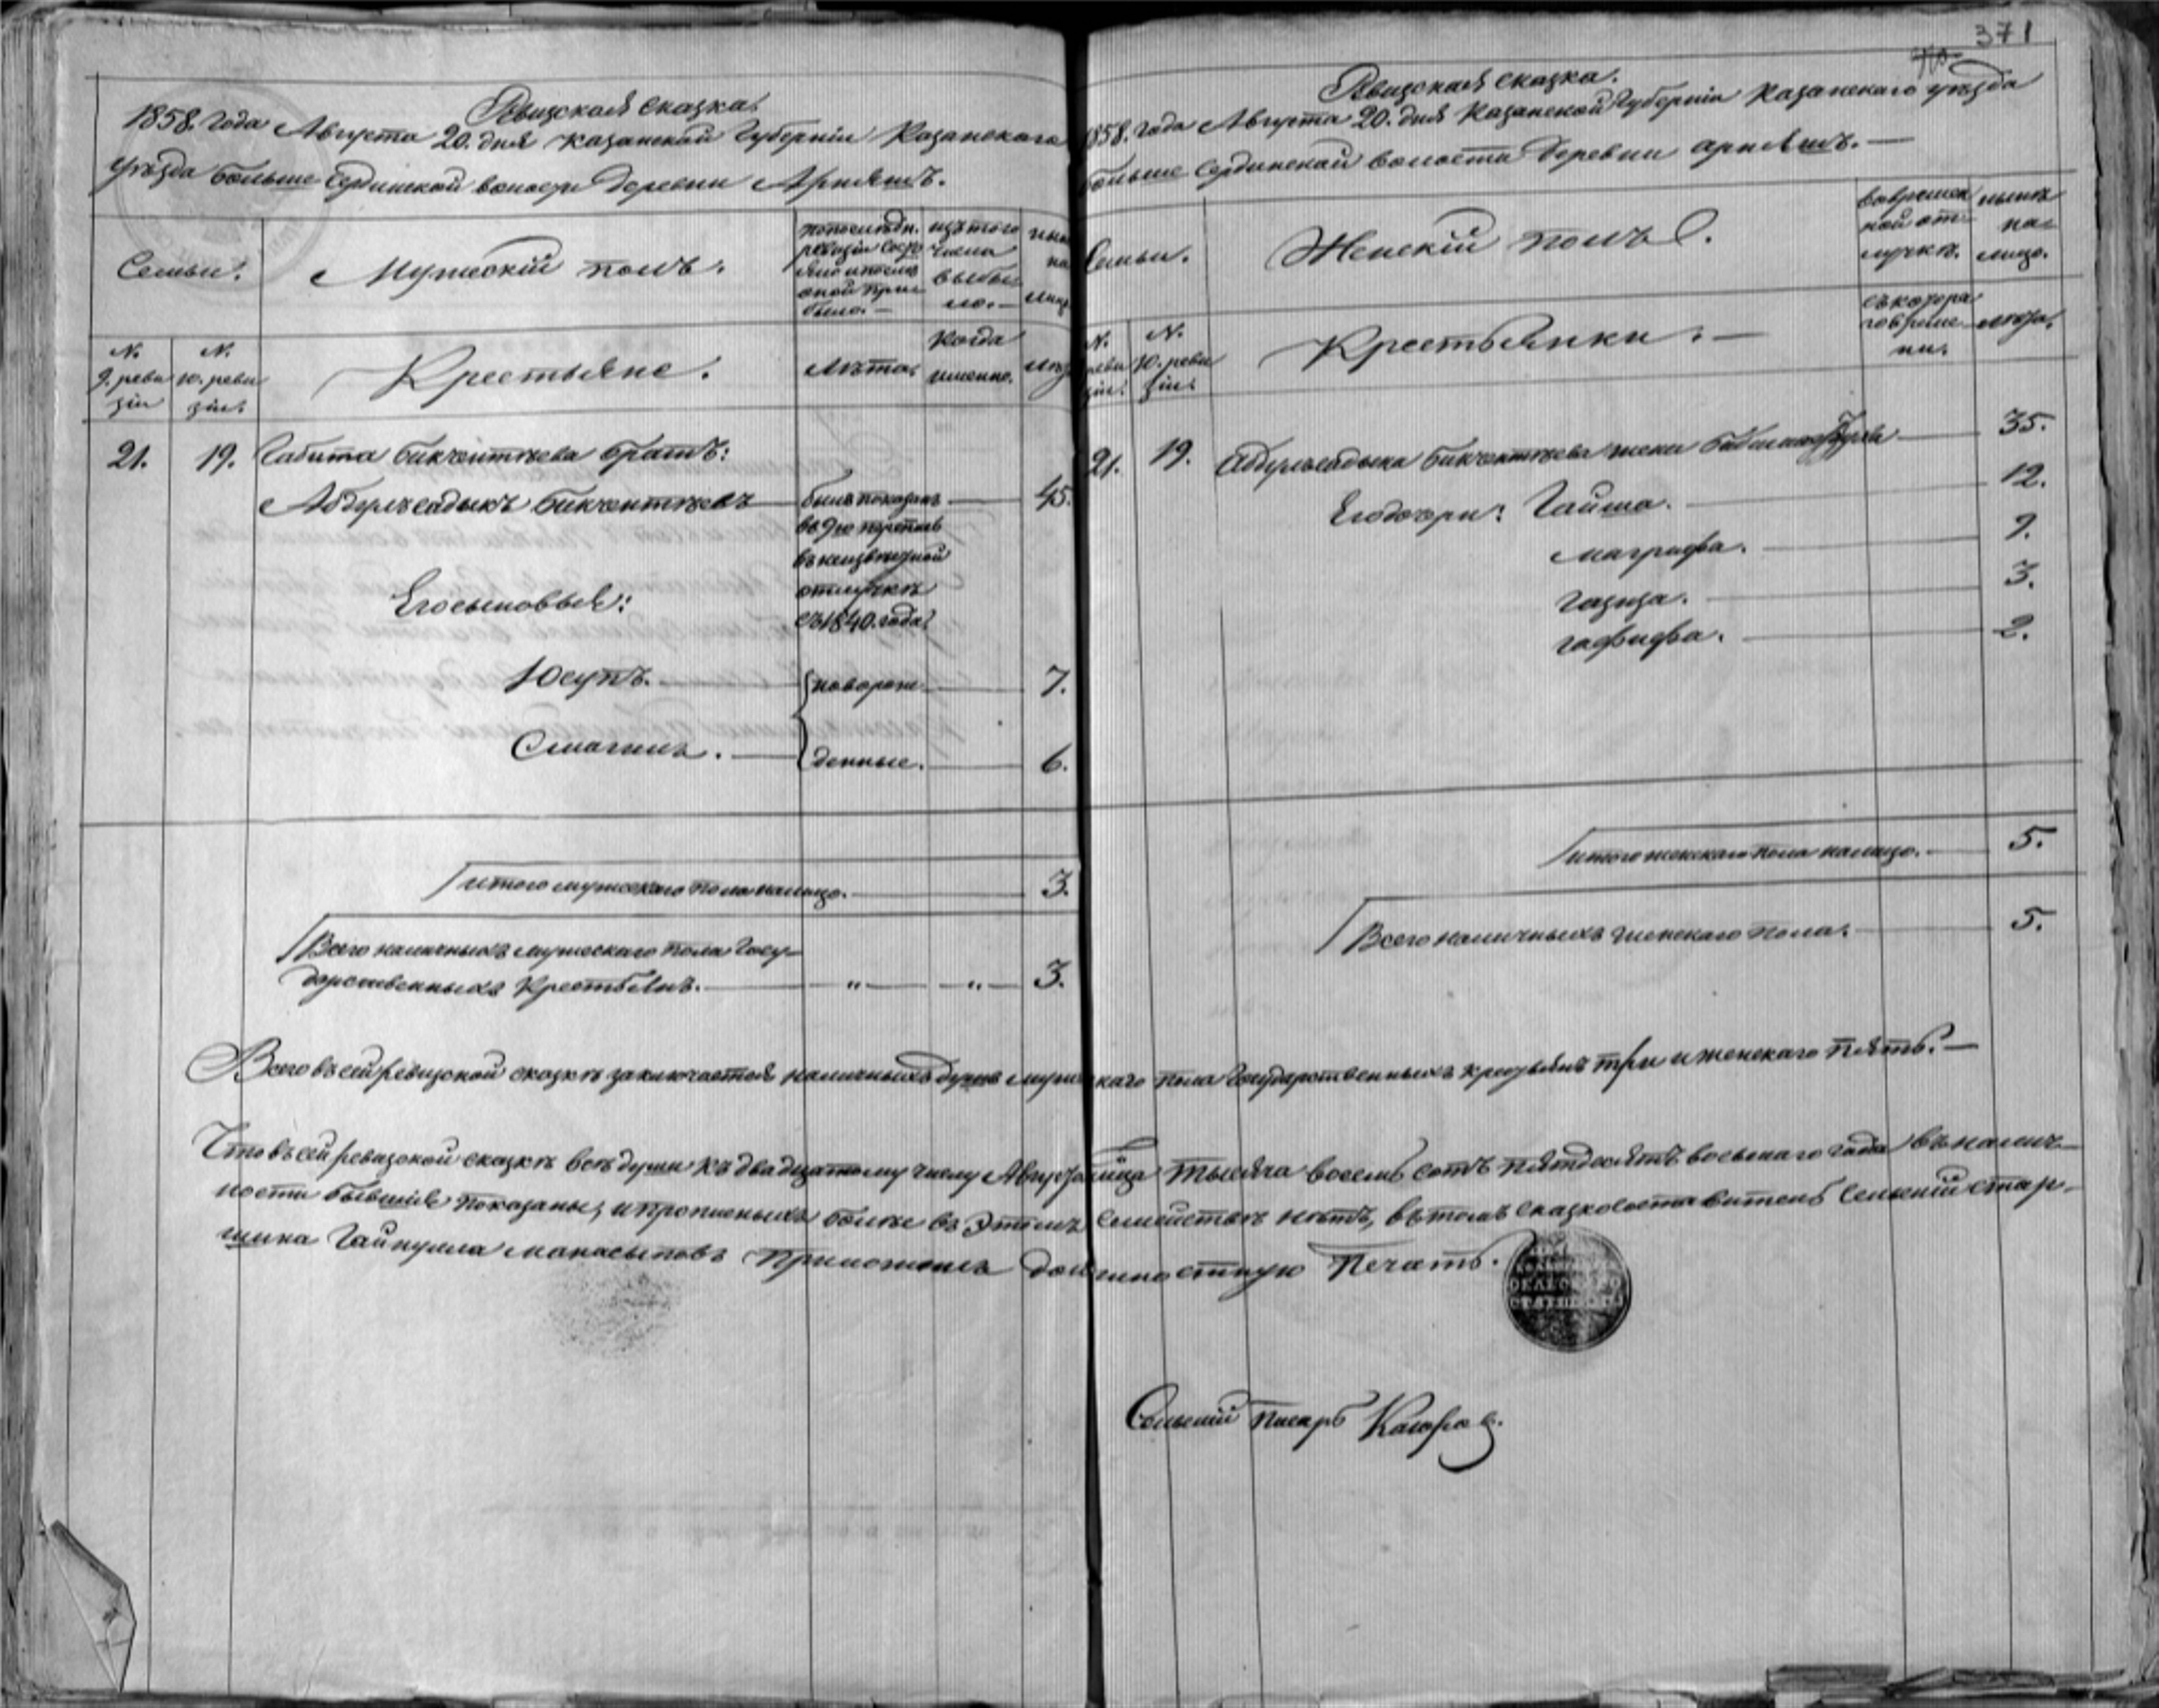 371
Ревизская сказка.
1858. года Августа 20. дня Казанской Губерніи Казанскаго
уѣзда больше Сердинской волости деревни Арняшъ.
Семьи.
Мужескій полъ.
по послѣдн. ревизіи состо яло и послѣ оной при было.—
изъ того числа выбы ло.—
ны на лице
N. 9. реви зіи
N. 10. реви зіи.
Крестьяне.
Лѣта.
когда именно.
лѣта
21. 19. Сабита Бикчентѣева братъ:
Абдулъсадыкъ Бикчентѣевъ был показанъ 45.
въ 9ю
въ неизвѣстной
отлучкѣ
съ 1840. года.
Его сыновья:
Юсупъ. — новорож 7.
Смагилъ. — денные. 6.
итого мужескаго пола налицо. — 3.
Всего наличныхъ мужескаго пола Госу-
дарственныхъ Крестьянъ. — „ — „ — 3.
Ревизская сказка.
1858. года Августа 20. дня Казанской Губерніи Казанскаго уѣзда
больше Сердинской волости Деревни Арняшъ.—
Семьи.
Женскій полъ.
во времен ной от лучкѣ.
нынѣ на лицо.
N. реви зіи.
N. 10. реви зіи.
Крестьянки.—
съ котора го време ни.
лѣта.
21. 19. Абдулъсадыка Бикчентѣева жена — 35.
Его дочри: Гайша. — 12.
Магрифа. — 9.
Газиза. — 3.
Гафифа. — 2.
итого женскаго пола налицо. — 5.
Всего наличныхъ женскаго пола. — 5.
Всего въ сей ревизской сказкѣ заключается наличныхъ душъ мужескаго пола Государственныхъ крестьянъ три и женскаго пять.—
Что въ сей ревизской сказкѣ всѣ души къ двадцатому числу Августа м̃ца тысяча восемь сотъ пятдесятъ восьмаго года въ налич-
ности бывшія показаны, и прописныхъ болѣе въ этомъ семействѣ нѣтъ, въ томъ сказкосоставитель Сельскій стар-
шина Гайнулла Манасыповъ приложилъ должностную Печать.
Сельскій писарь